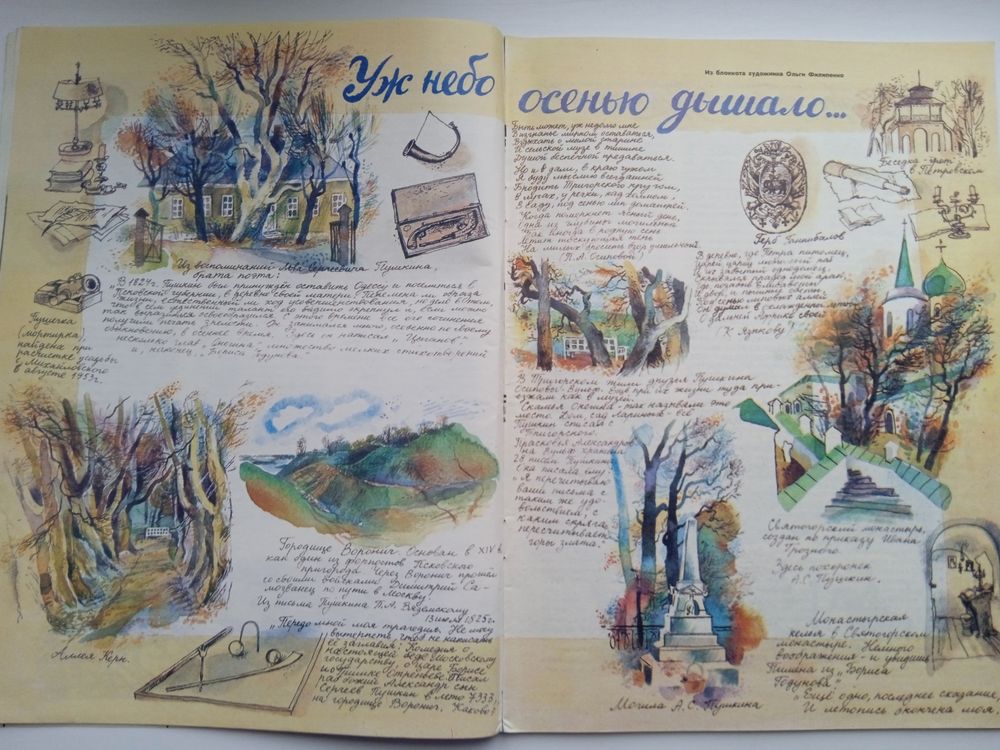 Из блокнота художника Ольги Филипенко
Уж небо осенью дышало...
Из воспоминаний Льва Сергеевича Пушкина,
брата поэта:
"В 1824 г. Пушкин был принуждён оставить Одессу и поселиться в
Псковской губернии, в деревне своей матери. Перемена ли образа
жизни, естественный ли ход усовершенствования, но дело в том,
что в сём уединении талант его видимо окрепнул и, если можно
так выразиться, освоеобразился. С этого времени все его сочинения
получили печать зрелости. Он занимался много, особенно по своему
обыкновению, в осеннее время. Здесь он написал "Цыганов",
несколько глав "Онегина", множество мелких стихотворений
и, наконец, "Бориса Годунова".
Пушечка
(мортирка),
найдена при
расчистке усадьбы
в Михайловском
в августе 1953 г.
Аллея Керн.
Городище Воронич. Основан в XIV в.
как один из форпостов Псковского
пригорода. Через Воронич прошёл
со своими войсками Димитрий Са-
мозванец по пути в Москву.
Из письма Пушкина П.А. Вяземскому
13 июля 1825 г.
"Передо мной моя трагедия. Не могу
вытерпеть, чтоб не выписать
её заглавия: Комедия о
настоящей беде Московскому
государству, о царе Борисе
и о Гришке Отрепьеве. Писал
раб божий Александр сын
Сергеев Пушкин в лето 7333,
на городище Воронич. Каково?
Быть может, уж недолго мне
В изгнанье мирном оставаться,
Вздыхать о милой старине
И сельской музе в тишине
Душой беспечной предаваться.
Но и в дали, в краю чужом
Я буду мыслию всегдашней
Бродить Тригорского кругом,
В лугах, у речки, над холмом,
В саду, под сенью лип домашней.
Когда померкнет ясный день,
Одна из глубины могильной
Так иногда в родную сень
Летит тоскующая тень
На милых бросить взор умильный.
(П.А. Осиповой)
В Тригорском жили друзья Пушкина
Осиповы-Вульф. Ещё при их жизни туда при-
езжали как в музей.
Скамья Онегина - так называли это
место. Дом, сад Лариных - всё
Пушкин списал с
Тригорского.
Прасковья Александров-
на Вульф хранила
28 писем Пушкина.
Она писала ему:
"Я перечитываю
ваши письма с
таким же удо-
вольствием, с
каким скряга
пересчитывает
горы злата."
Могила А.С. Пушкина
Герб Ганнибалов
Беседка-грот
в Петровском
В деревне, где Петра питомец,
Царей, цариц любимый раб
И их забытый однодомец,
Скрывался прадед мой арап,
Где, позабыв Елисаветы
И двор, и пышные обеты,
Под сенью липовых аллей
Он думал в охлажденны леты
О дальней Африке своей
(К Языкову)
Святогорский монастырь,
создан по приказу Ивана
Грозного.
Здесь похоронен
А.С. Пушкин.
Монастырская
келья в Святогорском
монастыре. Немного
воображения - и увидишь
Пимена из "Бориса
Годунова".
"Ещё одно, последнее сказание,
И летопись окончена моя.